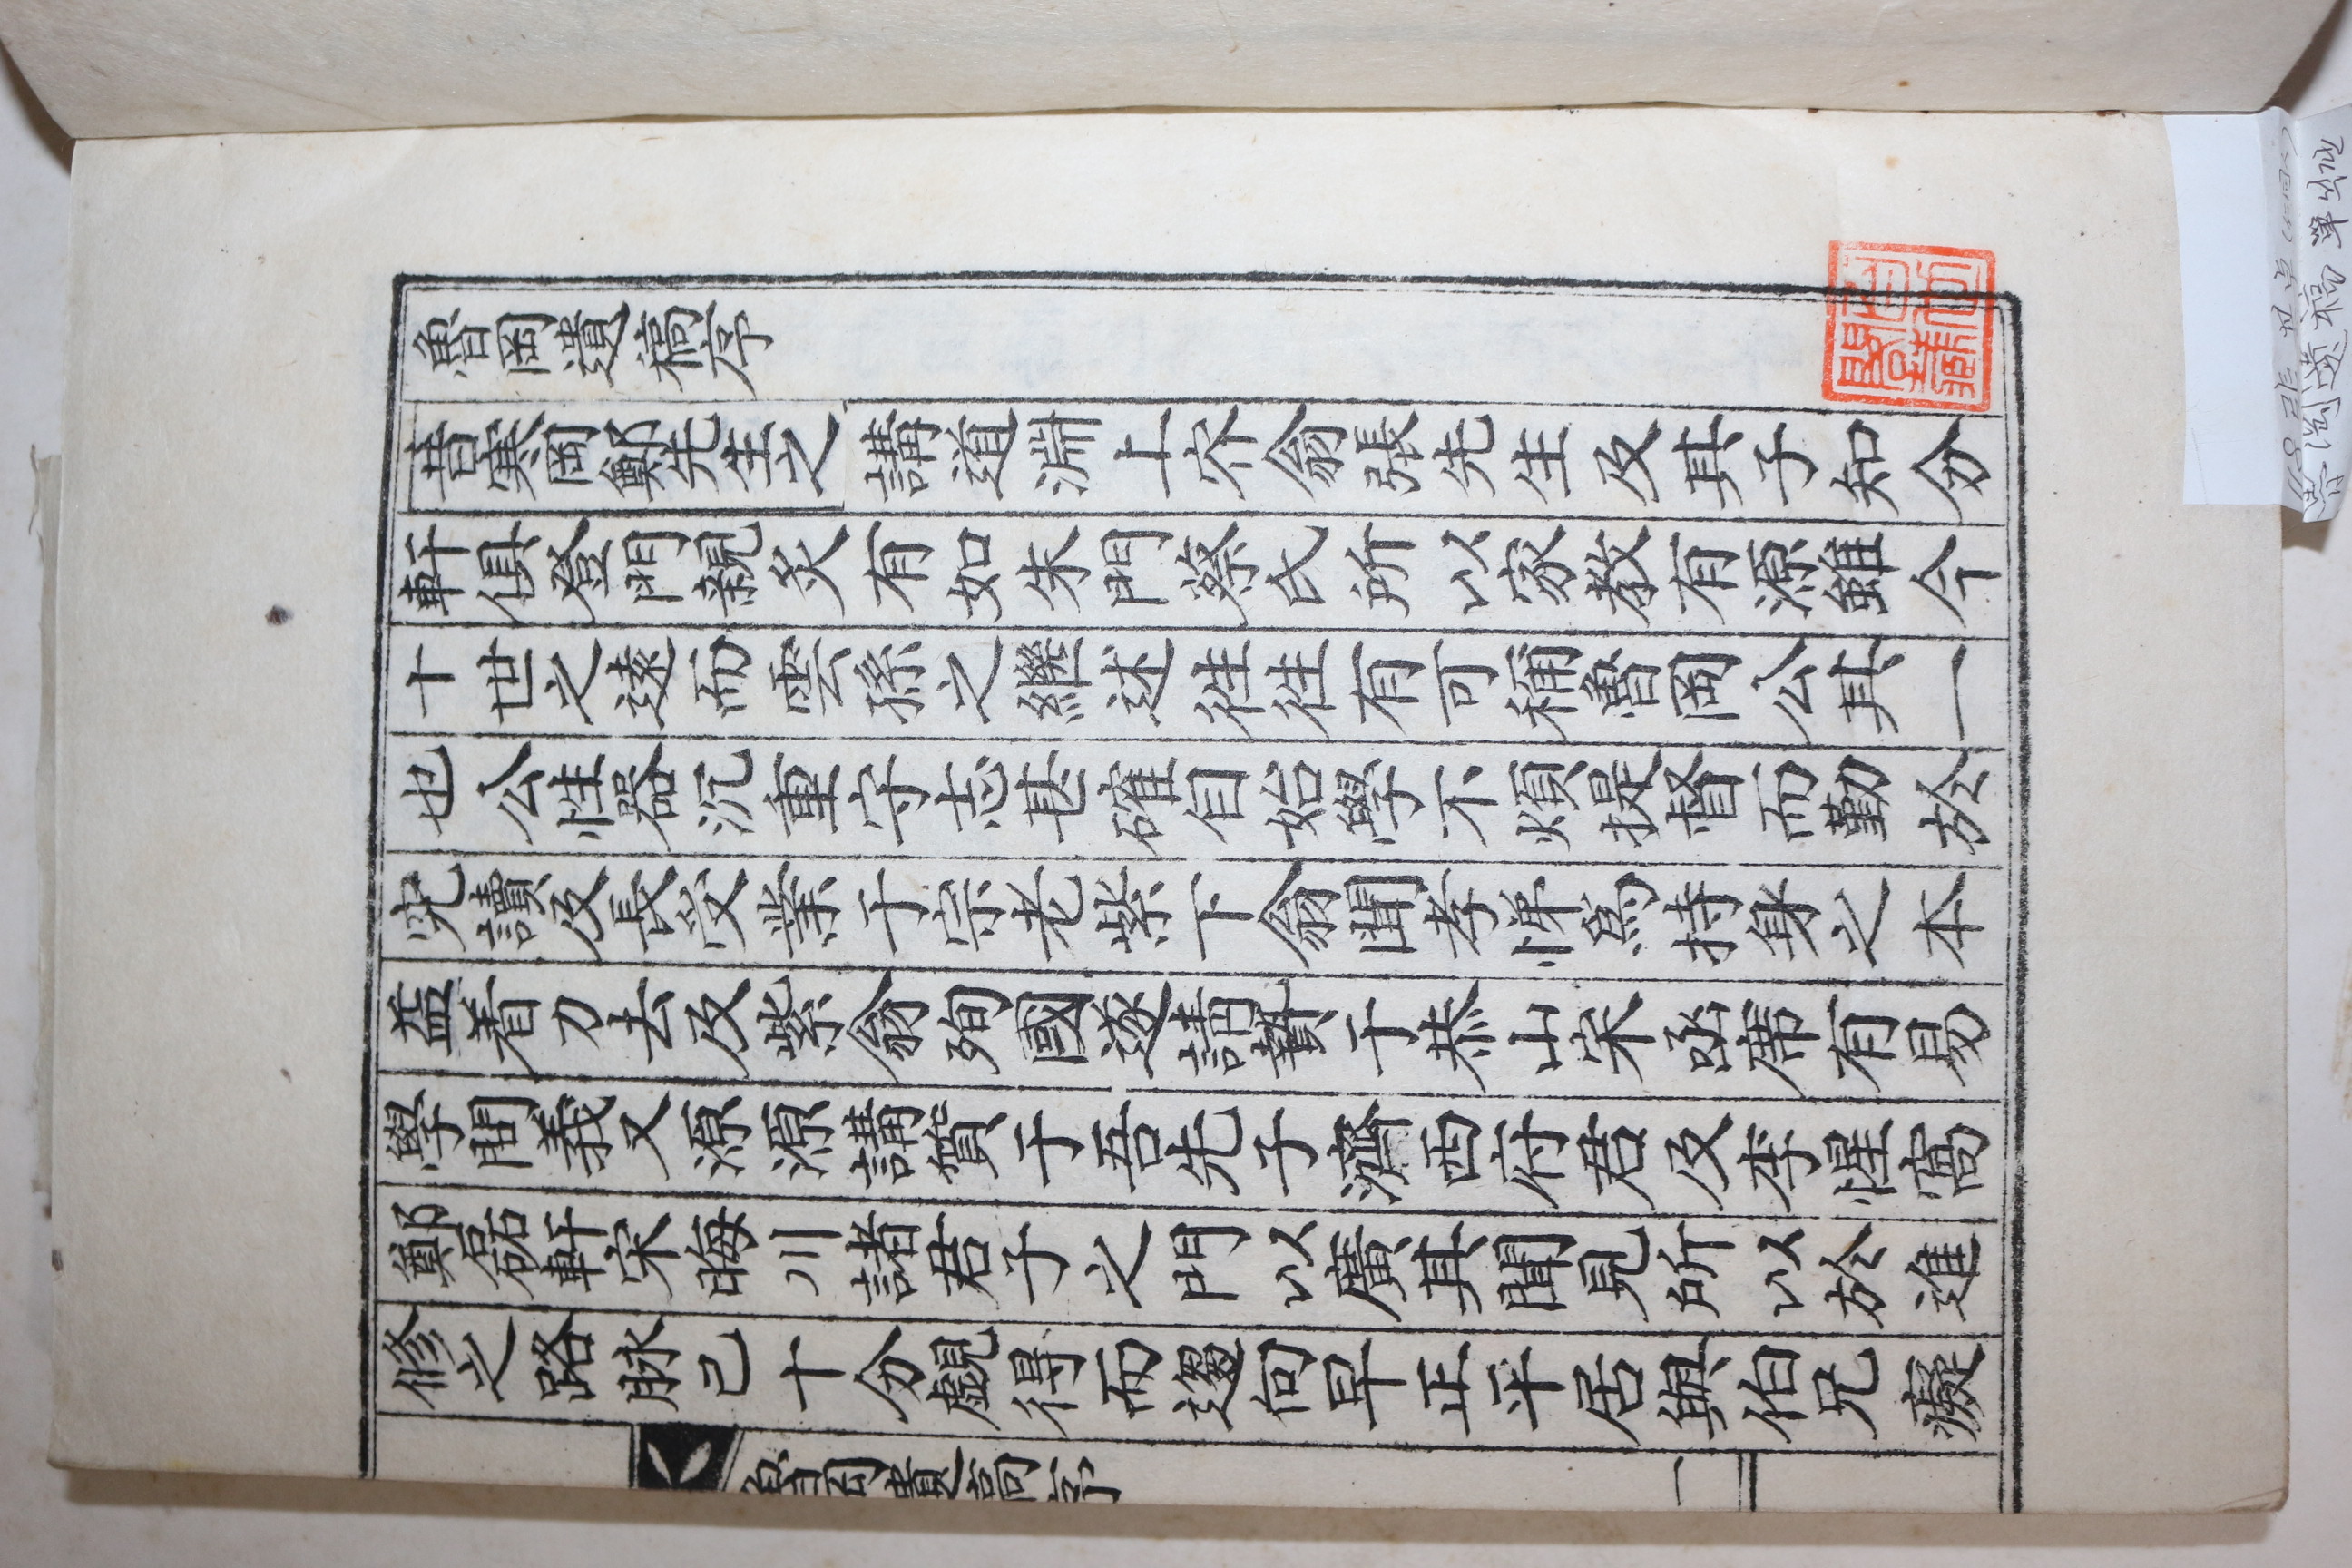 魯岡遺稿序
昔寒岡鄭先生之講道淵上也翁張先生及其子知分
軒俱登門親炙有如朱門蔡氏所以家教有源雖今
十世之遠而雲孫之繼述往往有可稱魯岡公其一
也公性器沉重守志甚確自始學不煩提督而勤於
究讀及長受業于宗老紫下翁聞孝悌爲持身之本
益着力去及紫翁殉國遂請贄于恭山宋丞席有易
學問義又源源講質于吾先子濟西府君及李惺窩
鄭磊軒宋晦川諸君子之門以廣其聞見所以於進
修之路脉已十分覷得而趨向早正平居與伯兄癡
魯岡遺稿序
一